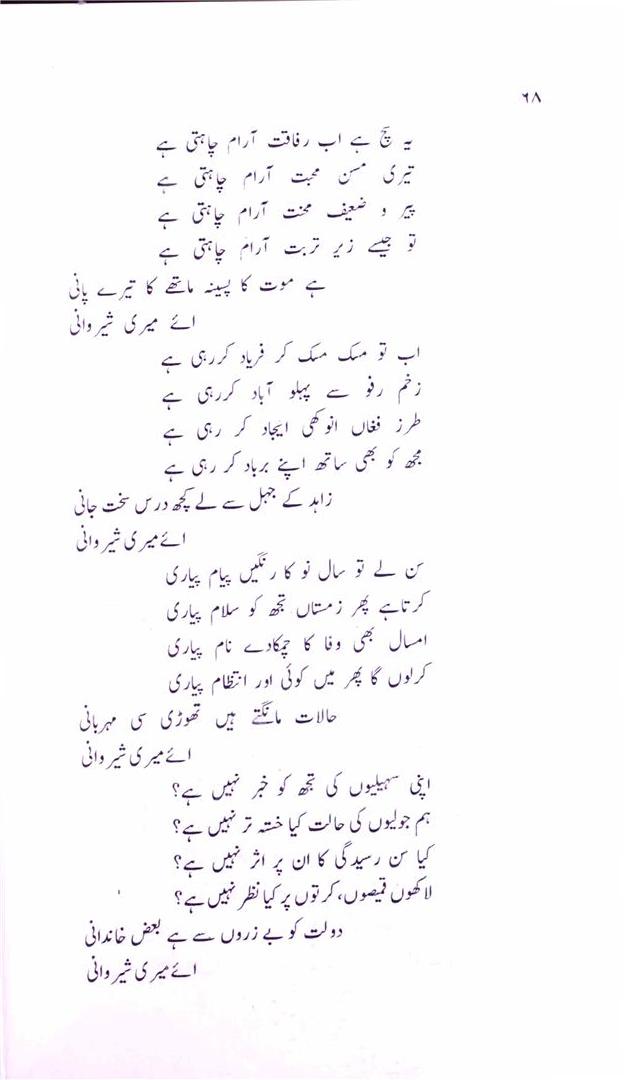 ۶۸
یہ سچ ہے اب رفاقت آرام چاہتی ہے
تیری مسن محبت آرام چاہتی ہے
پیر و ضعیف محنت آرام چاہتی ہے
تو جیسے زیر تربت آرام چاہتی ہے
ہے موت کا پسینہ ماتھے کا تیرے پانی
ائے میری شیروانی
اب تو مسک مسک کر فریاد کررہی ہے
زخم رفو سے پہلو آباد کررہی ہے
طرز فغاں انوکھی ایجاد کر رہی ہے
مجھ کو بھی ساتھ اپنے برباد کر رہی ہے
زاہد کے جہل سے لے کچھ درس سخت جانی
ائے میری شیروانی
سن لے تو سال نو کا رنگیں پیام پیاری
کرتاہے پھر زمستاں تجھ کو سلام پیاری
امسال بھی وفا کا چمکادے نام پیاری
کرلوں گا پھر میں کوئی اور انتظام پیاری
حالات مانگتے ہیں تھوڑی سی مہربانی
ائے میری شیروانی
اپنی سہیلیوں کی تجھ کو خبر نہیں ہے؟
ہم جولیوں کی حالت کیا خستہ تر نہیں ہے؟
کیا سن رسیدگی کا ان پر اثر نہیں ہے؟
لاکھوں قمیصوں، کرتوں پر کیا نظر نہیں ہے؟
دولت کو بے زروں سے ہے بعض خاندانی
ائے میری شیروانی